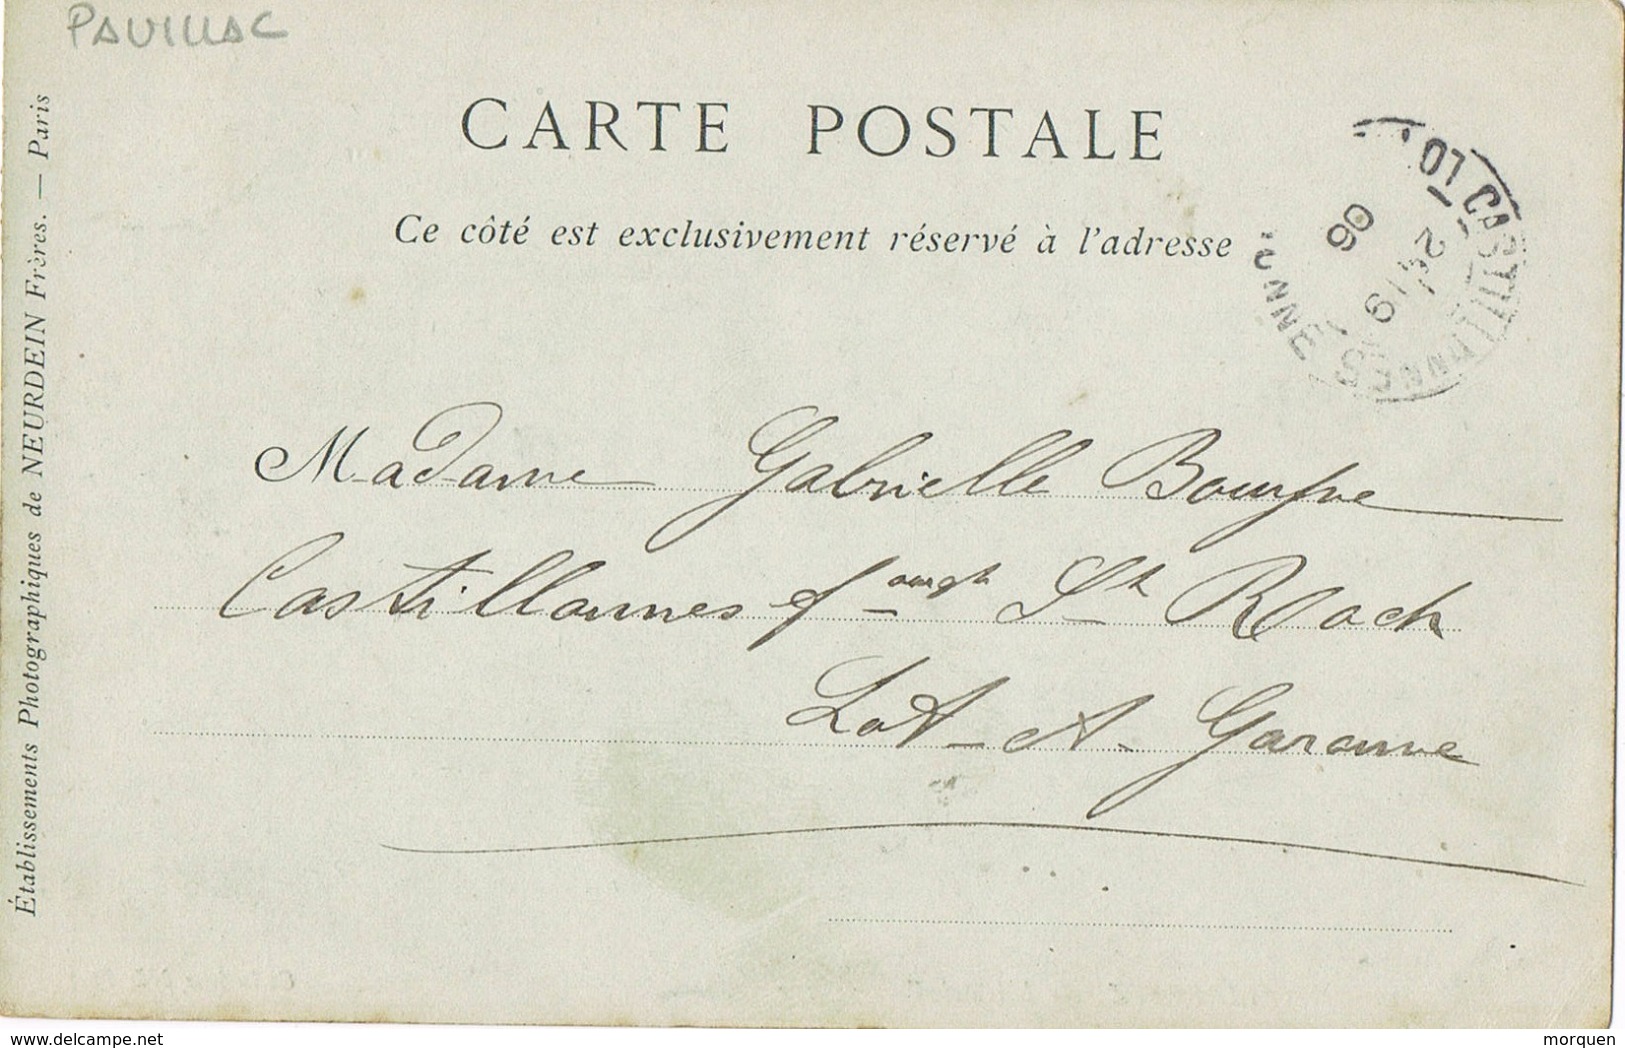 PAUILLAC
CARTE POSTALE
Ce côté est exclusivement réservé à l'adresse
Établissements Photographiques de NEURDEIN Frères. — Paris
CASTILLONNES
LOT
ONNE
24
19
06
Madame Gabrielle
Castillonnes f-ourgt St Roch
Lot-et-Garonne
www.delcampe.net
morquen